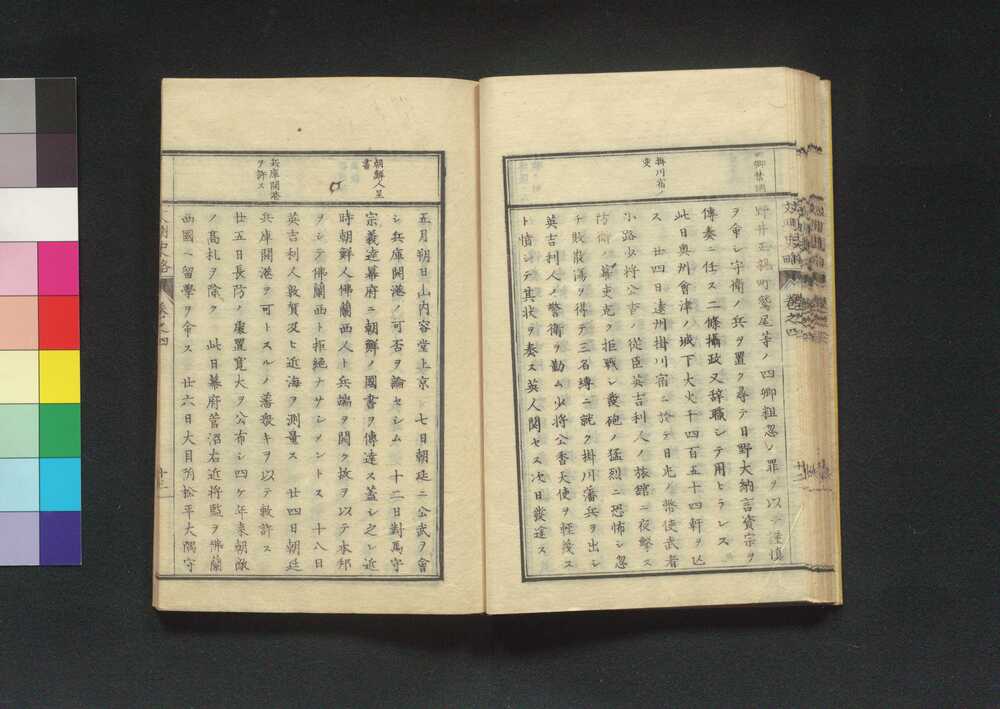 四卿禁固
掛川宿ノ
変
野井正親町鷲尾等ノ四卿粗忽ノ罪ヲ以テ謹慎
ヲ命シ守衛ノ兵ヲ置ク尋テ日野大納言資宗ヲ
傳奏ニ任ス二條攝政又辞職シテ用ヒラレス
此日奥州會津ノ城下大火千四百五十四軒ヲ亡
ス 廿四日遠州掛川宿ニ於テ日光ノ幣使武者
小路少将公香ノ従臣英吉利人ノ旅舘ニ夜撃ス
防衛ノ幕吏克ク拒戦シ發砲ノ猛烈ニ恐怖シ忽
チ敗散漏ヲ得テ三名縛ニ就ク掛川藩兵ヲ出シ
英吉利人ノ警衛ヲ勤ム少将公香天使ヲ軽蔑ス
ト憤シテ其状ヲ奏ス英人関セス次日發途ス
朝鮮人呈
書
兵庫開港
ヲ許ス
五月朔日山内容堂上京シ七日朝廷ニ公武ヲ會
シ兵庫開港ノ可否ヲ論セシム 十二日對馬守
宗義達幕府ニ朝鮮ノ國書ヲ傳達ス蓋シ之レ近
時朝鮮人佛蘭西人ト兵端ヲ開ク故ヲ以テ本邦
ヲシテ佛蘭西ト拒絶ナサシメントス 十八日
英吉利人敦賀及ヒ近海ヲ測量ス 廿四日朝廷
兵庫開港ヲ可トスルノ藩衆キヲ以テ敕許ス
廿五日長防ノ處置寛大ヲ公布シ四ケ年来朝敵
ノ高札ヲ除ク 此日幕府菅沼右近将監ヲ佛蘭
西國ヘ留學ヲ命ス 廿六日大目附松平大隅守
卷之四